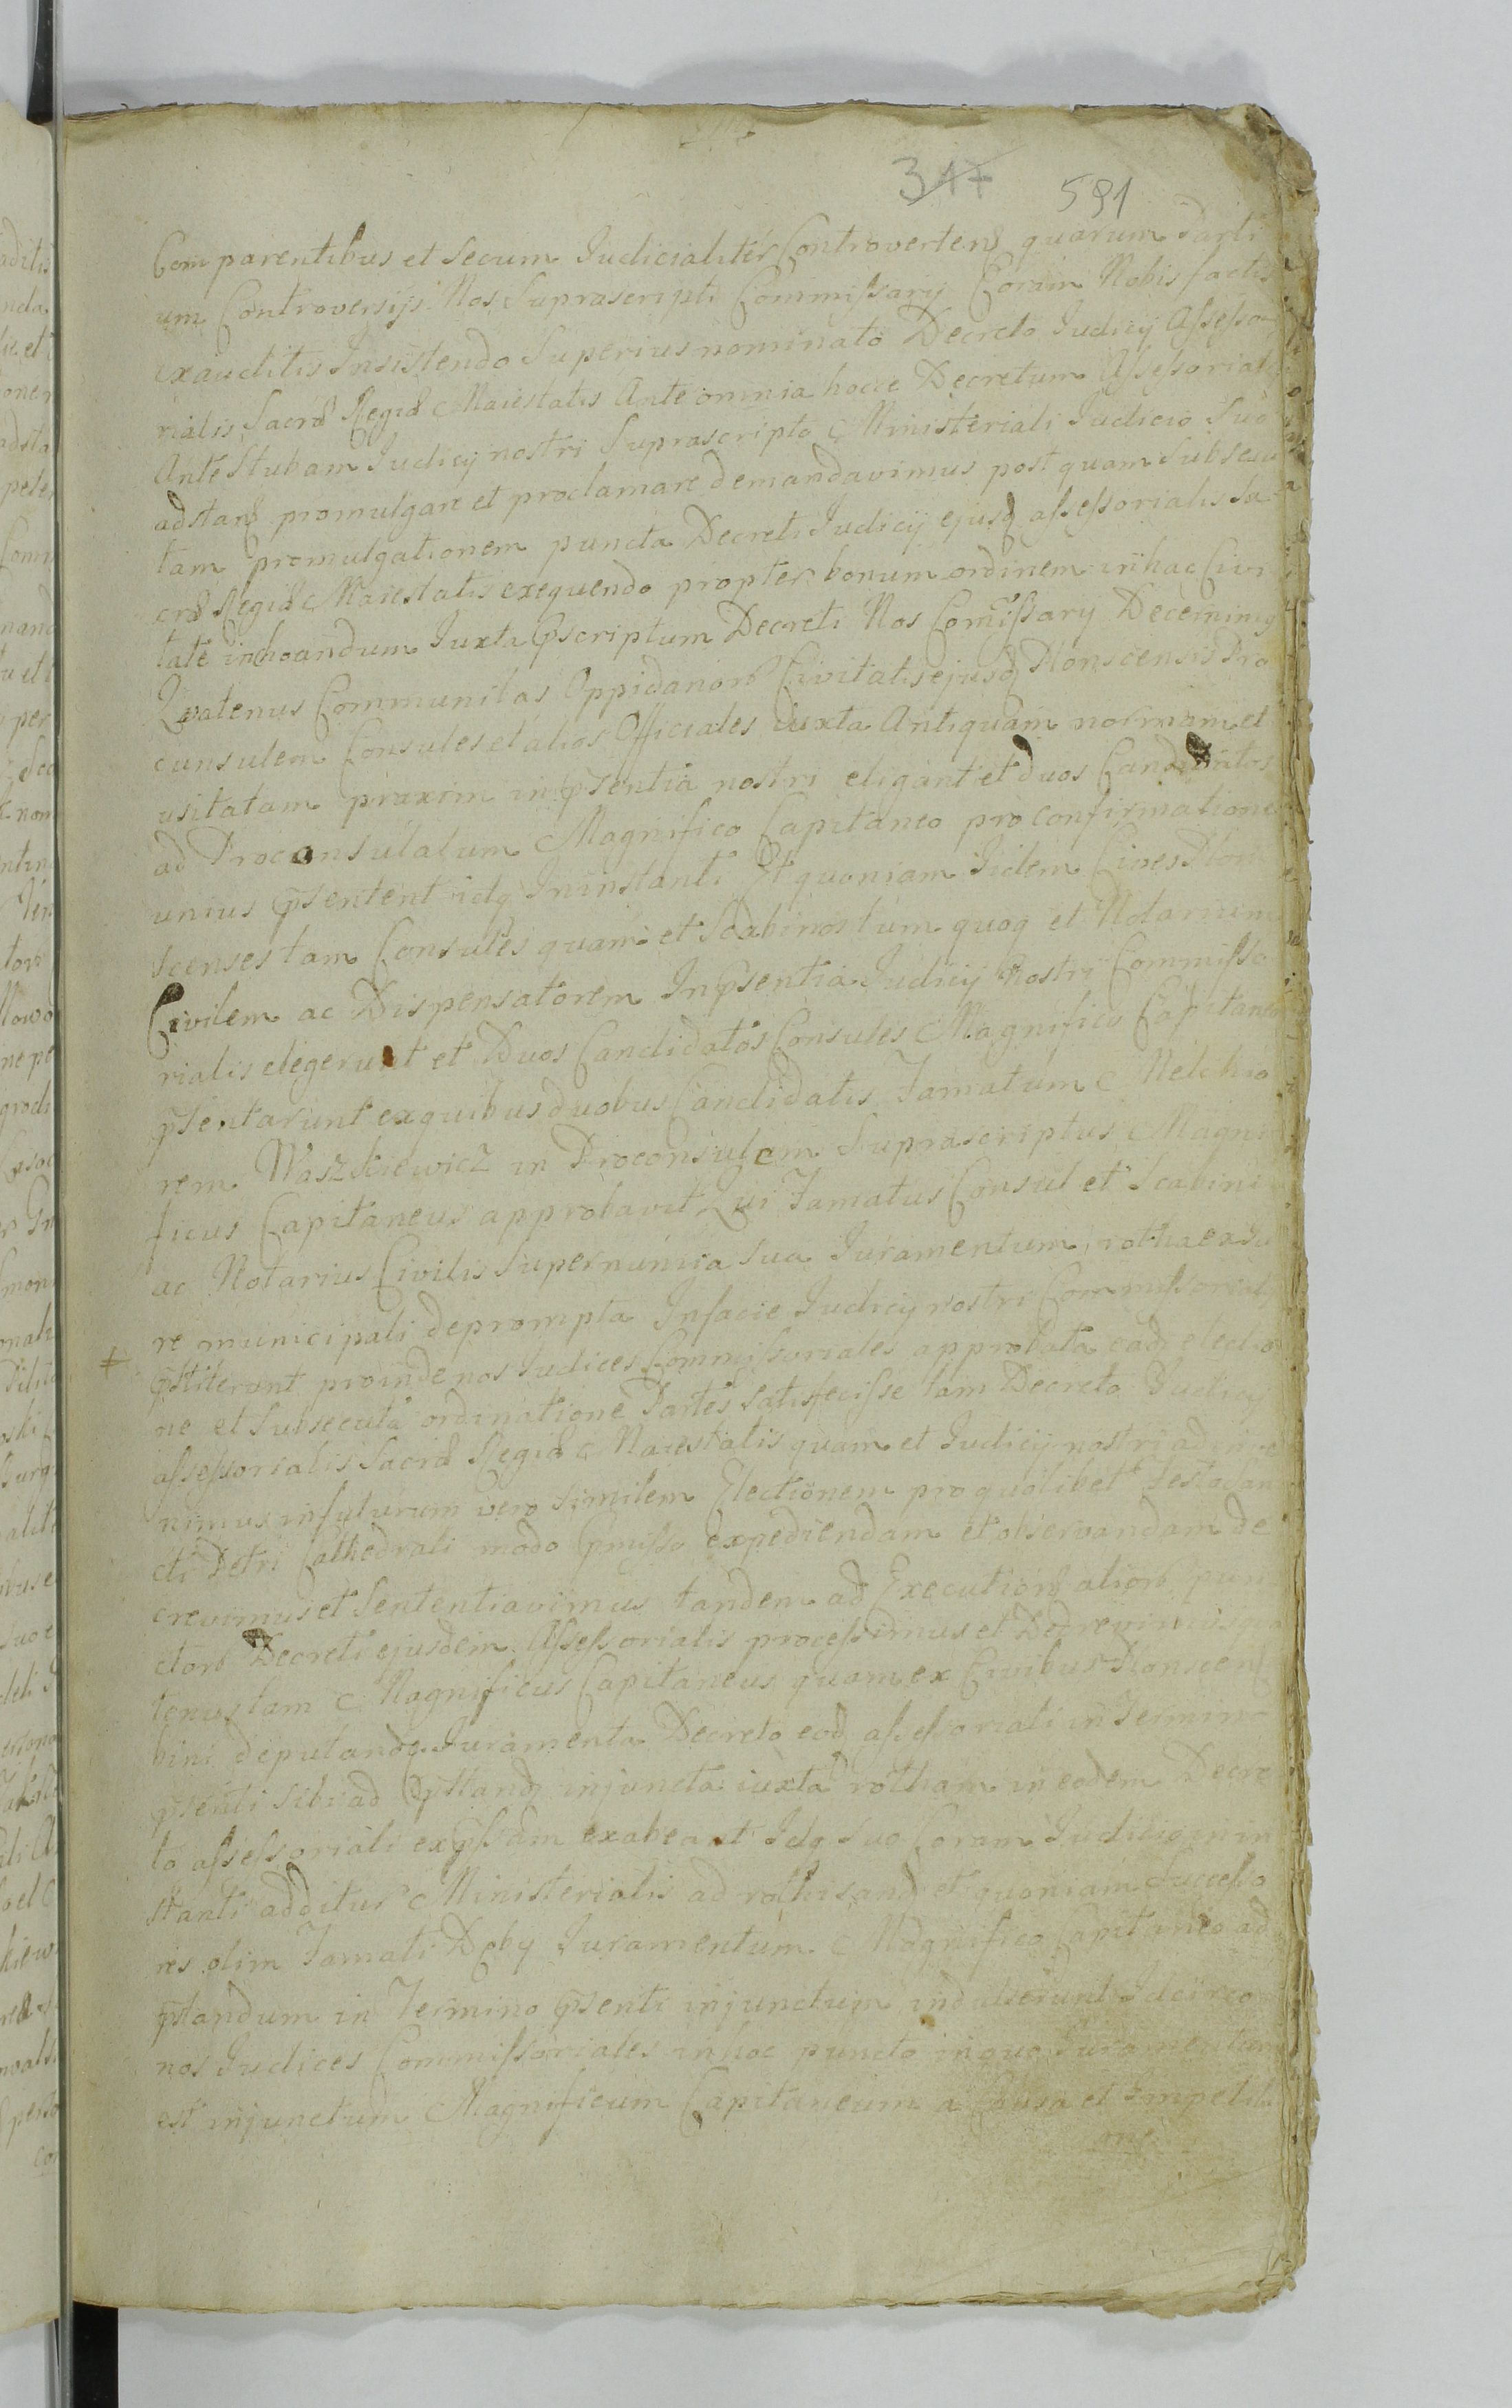 317 591
Comparentibus et secum Judicialiter Controverten quarum Parti
um Controversijs Nos Suprascripti Commissarij Coram Nobis factis
exauditis Insistendo Superius nominato Decreto Judicij Assesso
rialis Sacrae Regiae Maiestatis Ante omnia hocce Decretum Assessoriale
Ante Stubam Judicij nostri Suprascripto Ministeriali Judicio Suo
adstan promulgare et proclamare demandavimus post quam Subsecu
tam promulgationem puncta Decreti Judicij ejusq assessorialis Sa
crae Regiae Maiestatis exequendo propter bonum ordinem in hac Civi
tate inchoandum Juxta pscriptum Decreti Nos Comissarij Decernimq
Quatenus Communitas Oppidanor Civitatis ejusq Plonscensis Pro
cunsulem Consules et alios Officiales Juxta Antiquam normam et
usitatam praxim in psentia nostri eligant et duos Candidatos
ad Proconsulatum Magnifico Capitaneo pro Confirmatione
unius psentent idq Ininstanti Et quoniam Iidem Cives Plon
scenses tam Consules quam et Scabinos tum quoq et Notarium
Civilem ac Dispensatorem In psentia Judicij Nostri Commisso
rialis elegerunt et Duos Candidatos Consules Magnifico Capitaneo
psentarunt ex quibus duobus Candidatis Famatum Melchio
rem Waszkiewicz in Proconsulem Suprascriptus Magni
ficus Capitaneus approbavit Qui Famatus Consul et Scabini
ac Notarius Civilis Super munia sua Juramentum, rotha ex Ju
re municipali deprompta Infacie Judicij nostri Commissorial
pstiterunt proinde nos Judices Commissoriales approbata eadq electio
ne et Subsecuta ordinatione Partes satisfecisse tam Decreto Judicij
assessorialis Sacrae Regiae Maiestatis quam et Judicij nostri adinve
nimus in futurum vero Similem Electionem pro quolibet Festo San
cti Petri Cathedrali modo pmisso expediendam et observandam de
crevimus et Sententiavimus tandem ad Execution alior pun
ctor Decreti ejusdem Assessorialis processimus et Decrevimus qua
tenus tam Magnificus Capitaneus quam ex Civibus Plonscen
bini deputandq Juramenta Decreto eodq assessoriali in Termino
psenti sibi ad pstand injuncta iuxta rotham in eodem Decre
to assessoriali expssam exabeant Idq Suo Coram Judicio in in
stanti additur Ministerialis ad rothisand et quoniam Successo
res olim Famati Deby Juramentum Magnifico Capitaneo ad
pstandum in Termino psenti injunctum indulserunt Idcirco
nos Judices Commissoriales in hoc puncto in quo Juramentum
est injunctum Magnificum Capitaneum a Causa et Impetiti
one